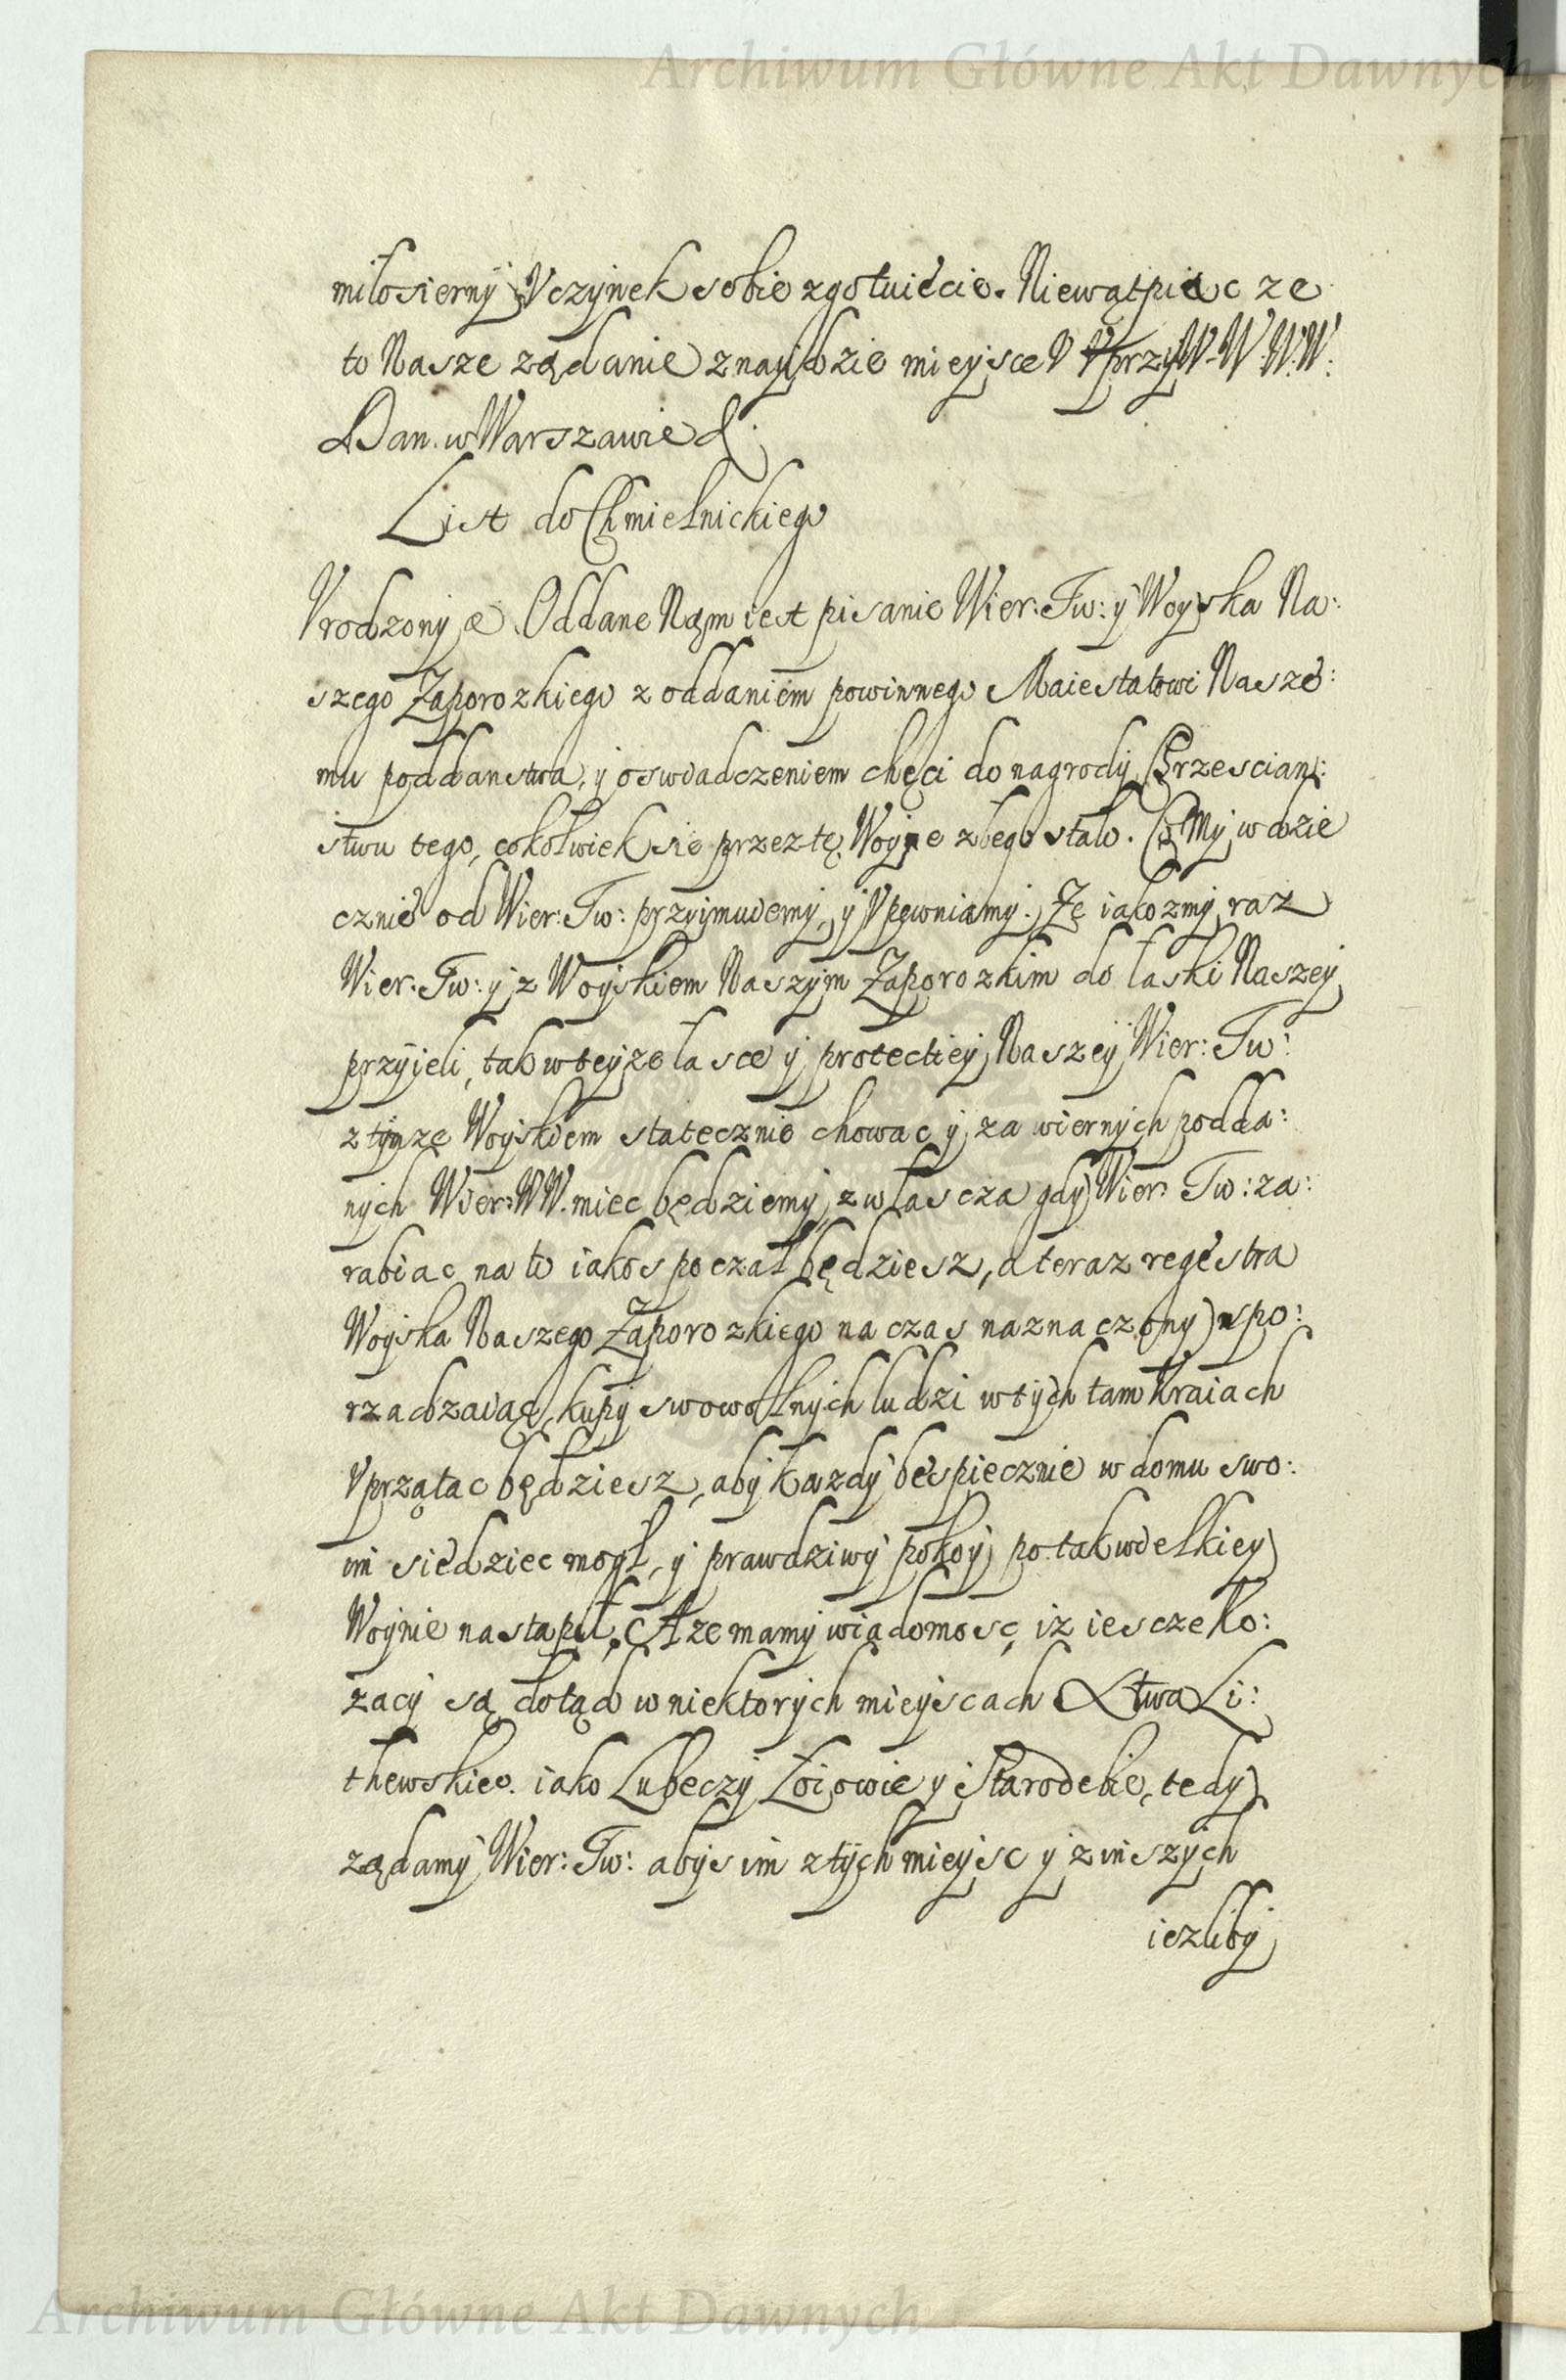 Archiwum Główne Akt Dawnych
miłosierny Vczynek sobie zgotuiecie. Niewątpiąc ze
to Nasze ządanie znaydzie mieysce V W W W.W.
Dan. w Warszawie d.
List do Chmielnickiego
Vrodzony æ. Oddane Nąm iest pisanie Wier: Tw: y Woyska Na:
szego Zaporozkiego z oddaniem powinnego Maiestatowi Nasze:
mu poddanstwa, y oswiadczeniem chęci do nagrody Chrzescian:
stwu tego, cokolwiek sie przez tę Woyne złego stało. Co My wdzie
cznie od Wier: Tw: przyimuiemy, y Vpewniamy. Ze iakozmy raz
Wier: Tw: y z Woyskiem Naszym Zaporozkim do łaski Naszey
przyieli, tak w teyze łasce y protectiey Naszey Wier: Tw:
z tymze Woyskiem statecznie chowac y za wiernych podda:
nych Wier: WW. miec będziemy, zwłascza gdy Wier: Tw: za:
rabiac na to iakos poczał będziesz, a teraz regestra
Woyska Naszego Zaporozkiego na czas naznaczony spo:
rządzaiąc, kupy swowolnych ludzi w tych tam Kraiach
Vprzątac będziesz, aby kazdy bespiecznie w domu swo:
im siedziec mogł, y prawdziwy pokoy po tak wielkiey
Woynie nastąpił. A ze mamy wiadomosc, iz iescze Ko:
zacy są dotąd w niektorych mieyscach Xtwa Li:
thewskieo. iako Lubeczy Łoiowie y Starodebie, tedy
ządamy Wier: Tw: abys im z tych mieysc y z inszych
iezliby
Archiwum Główne Akt Dawnych